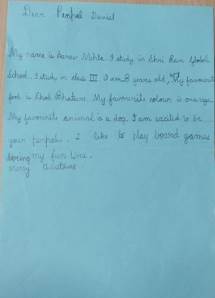 Dear Penpal Daniel
My name is Aarav Mehta. I study in Shri Ram Global
School. I study in class III. I am 8 years old, My favourite
food is Chole Bhature. My favourite colour is orange.
My favourite animal is a dog. I am excited to be
your penpal. I like to play board games
during my fun time.
Merry Christmas